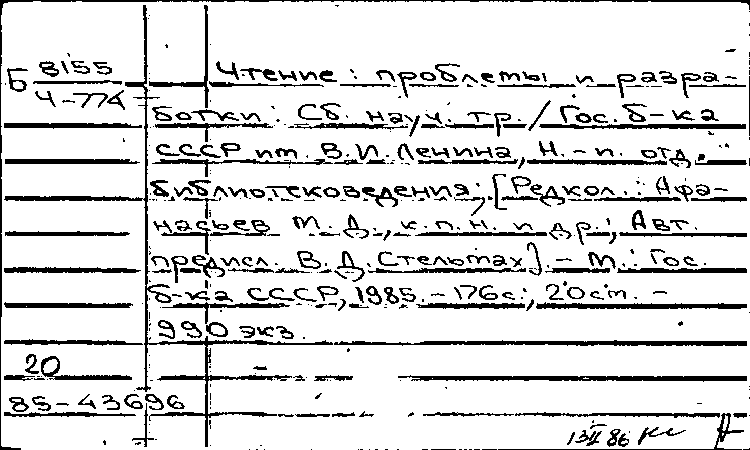 Б 8155
Ч-774
Чтение: проблемы и разра-
ботки: Сб. науч. тр. / Гос. б-ка
СССР им. В.И. Ленина, Н.-и. отд.
библиотековедения; [Редкол.: Афа-
насьев М.Д., к.п.н. и др.; Авт.
предисл. В.Д. Стельмах]. - М.: Гос.
б-ка СССР, 1985. - 176с.; 20см. -
990 экз.
20
85-43696
13 II 86